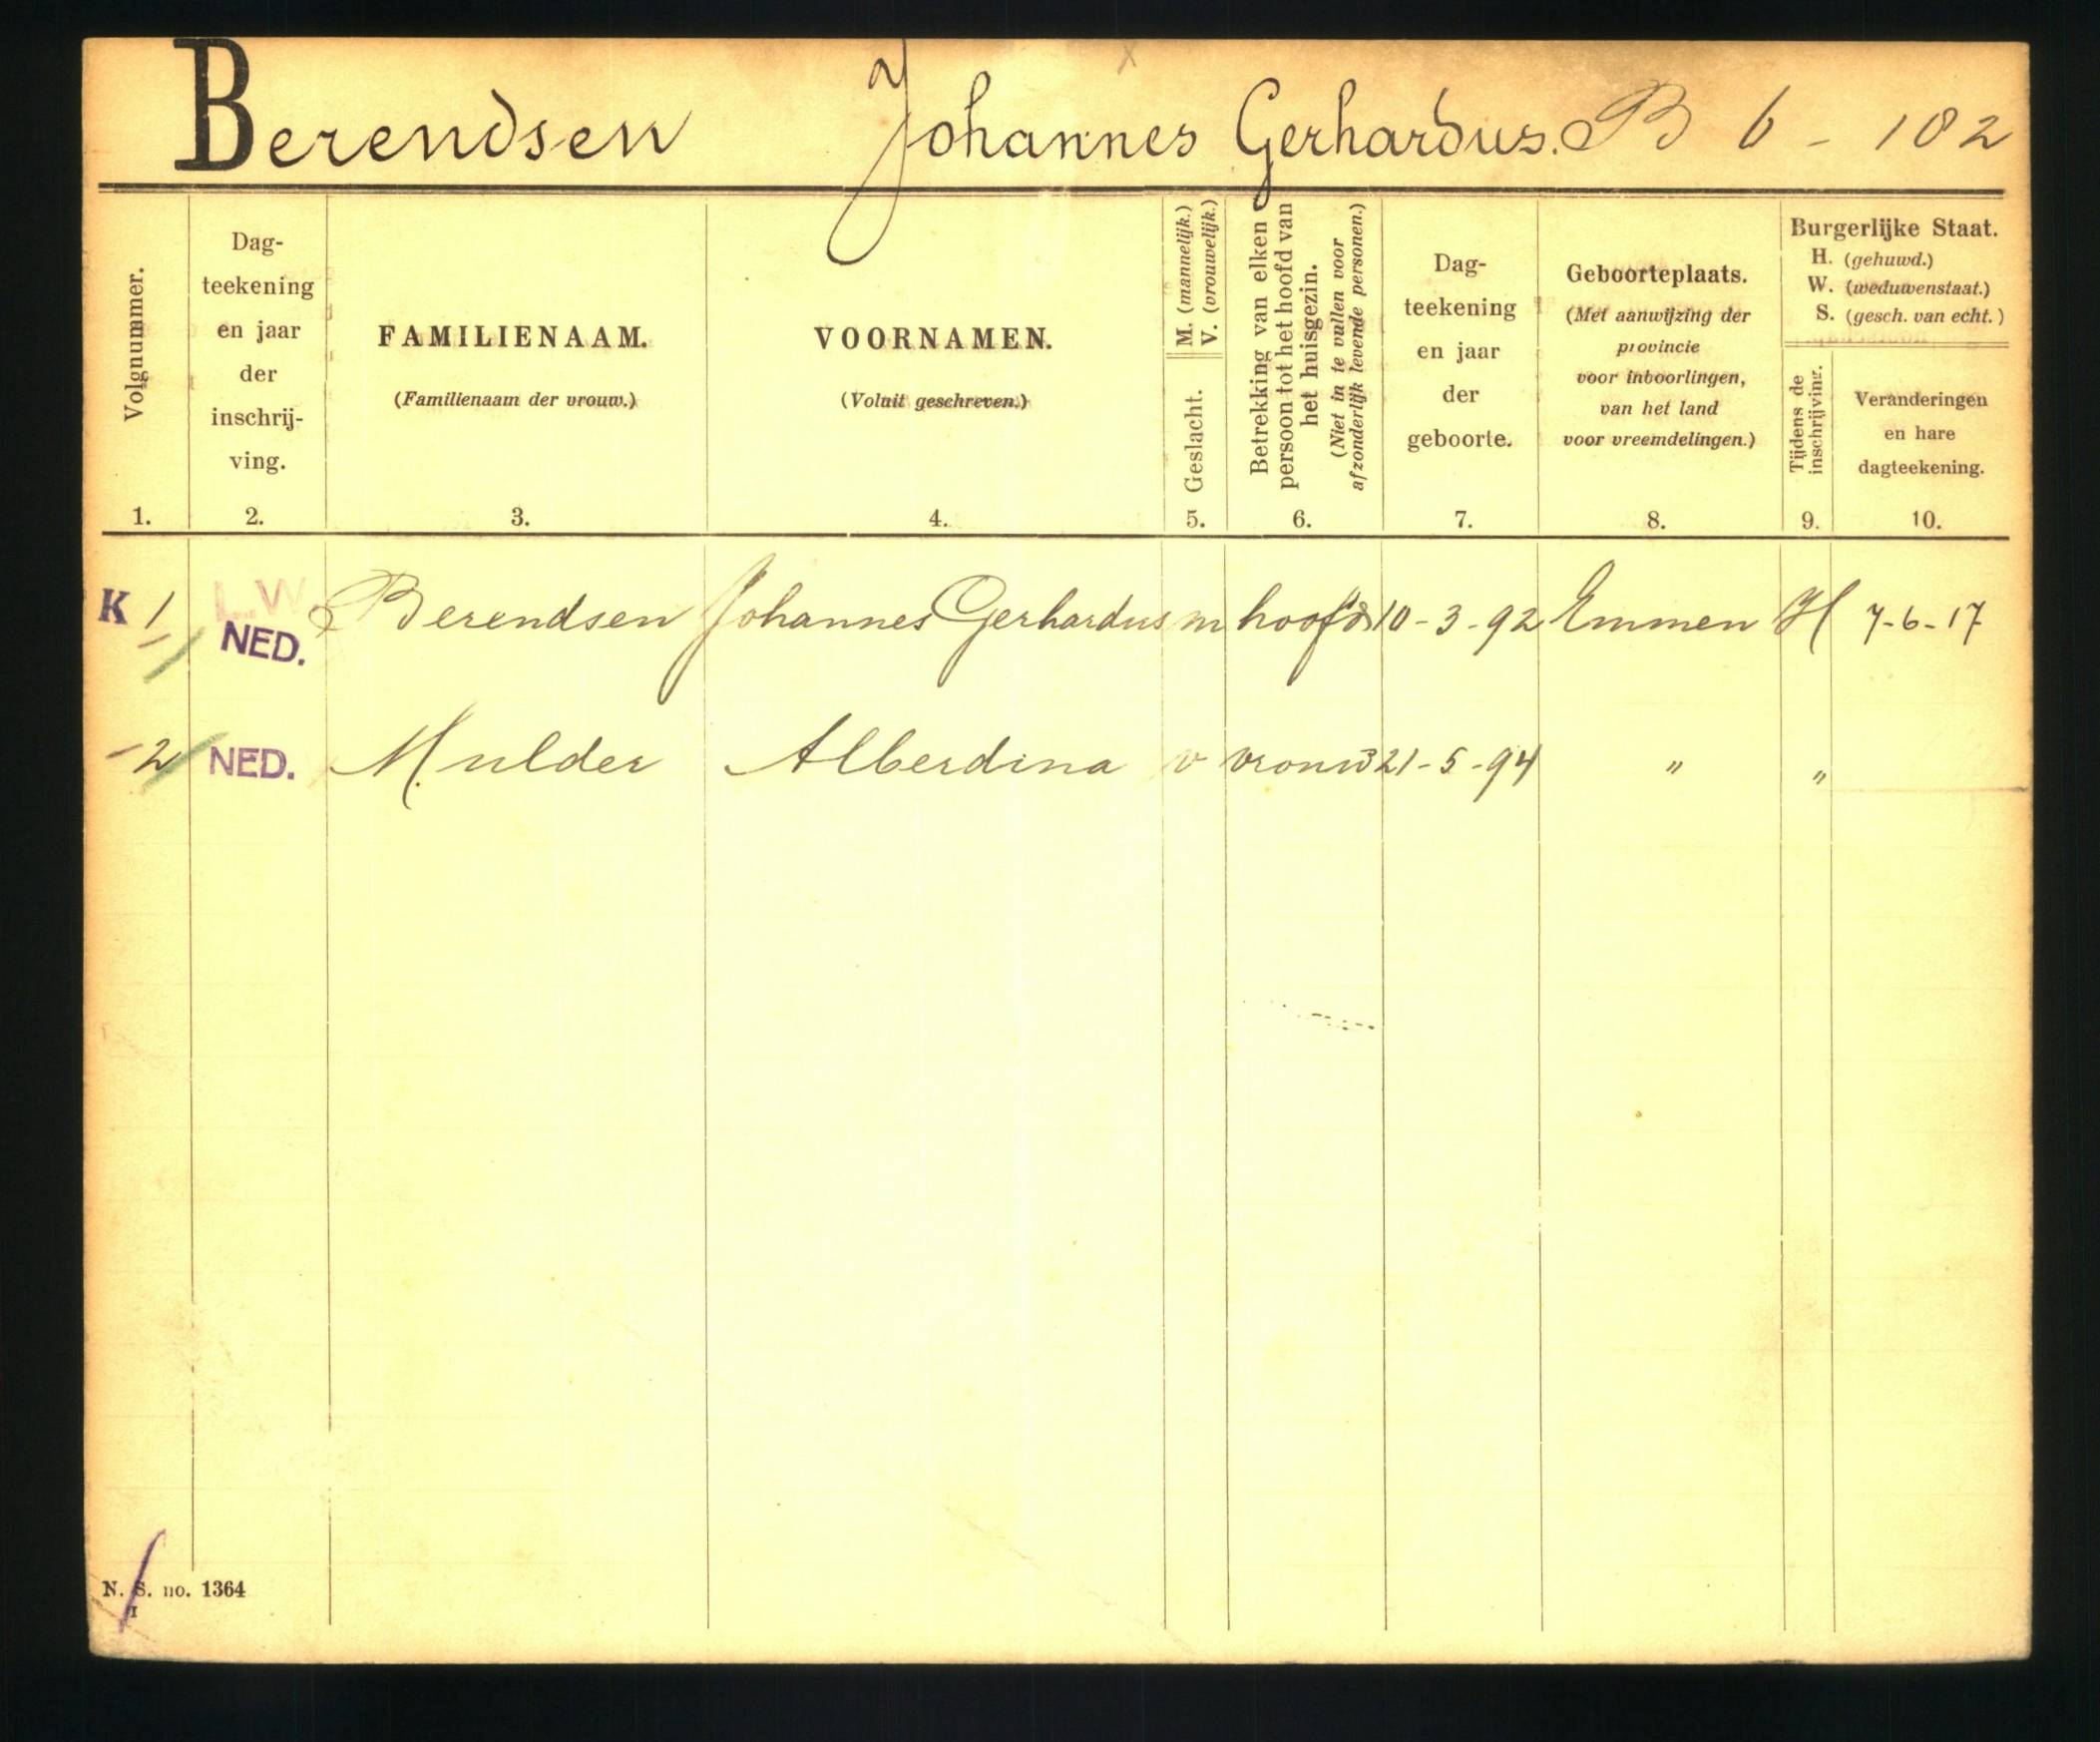 Berendsen Johannes Gerhardus. B 6 - 182
Volgnummer.
1.
Dag-
teekening
en jaar
der
inschrij-
ving.
2.
FAMILIENAAM.
(Familienaam der vrouw.)
3.
VOORNAMEN.
(Voluit geschreven.)
4.
M. (mannelijk.)
V. (vrouwelijk.)
Geslacht.
5.
Betrekking van elken
persoon tot het hoofd van
het huisgezin.
(Niet in te vullen voor
afzonderlijk levende personen.)
6.
Dag-
teekening
en jaar
der
geboorte.
7.
Geboorteplaats.
(Met aanwijzing der
provincie
voor inboorlingen,
van het land
voor vreemdelingen.)
8.
Burgerlijke Staat.
H. (gehuwd.)
W. (weduwenstaat.)
S. (gesch. van echt.)
Tijdens de
inschrijving.
9.
Veranderingen
en hare
dagteekening.
10.
K 1 NED. Berendsen Johannes Gerhardus m hoofd 10-3-92 Emmen H 7-6-17
2 NED. Mulder Alberdina v vrouw 21-5-94 " "
N. S. no. 1364
I